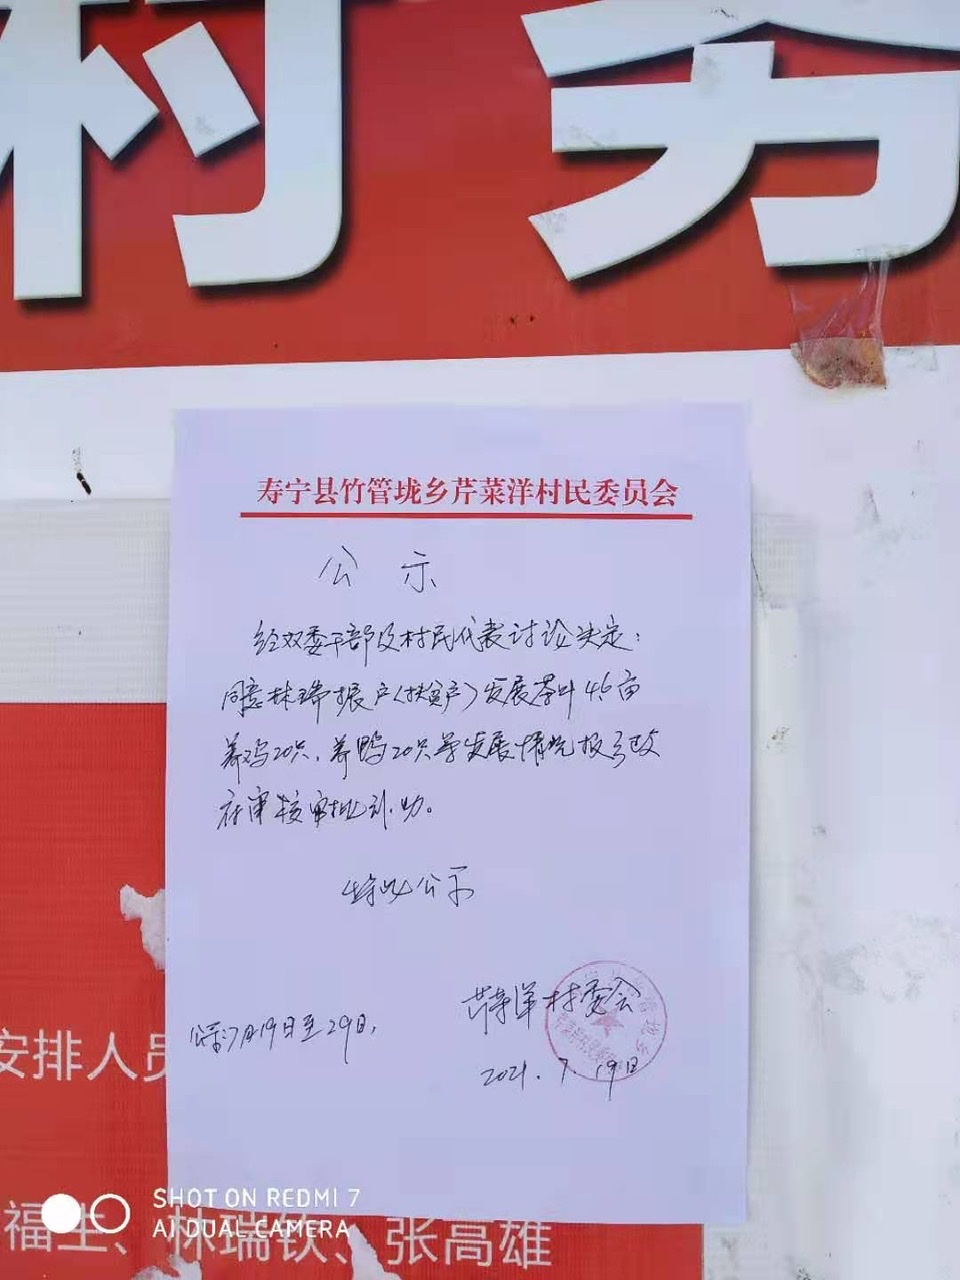 村务
寿宁县竹管垅乡芹菜洋村民委员会
公示
经双委干部及村民代表讨论决定：
同意林瑞振户（扶贫户）发展茶叶46亩
养鸡20只、养鸭20只等发展情况报乡政
府审核审批补助。
特此公示
芹菜洋村委会
公示7月19日至29日，
2021.7.19日
安排人员
福生、林瑞钦、张高雄
SHOT ON REDMI 7
AI DUAL CAMERA